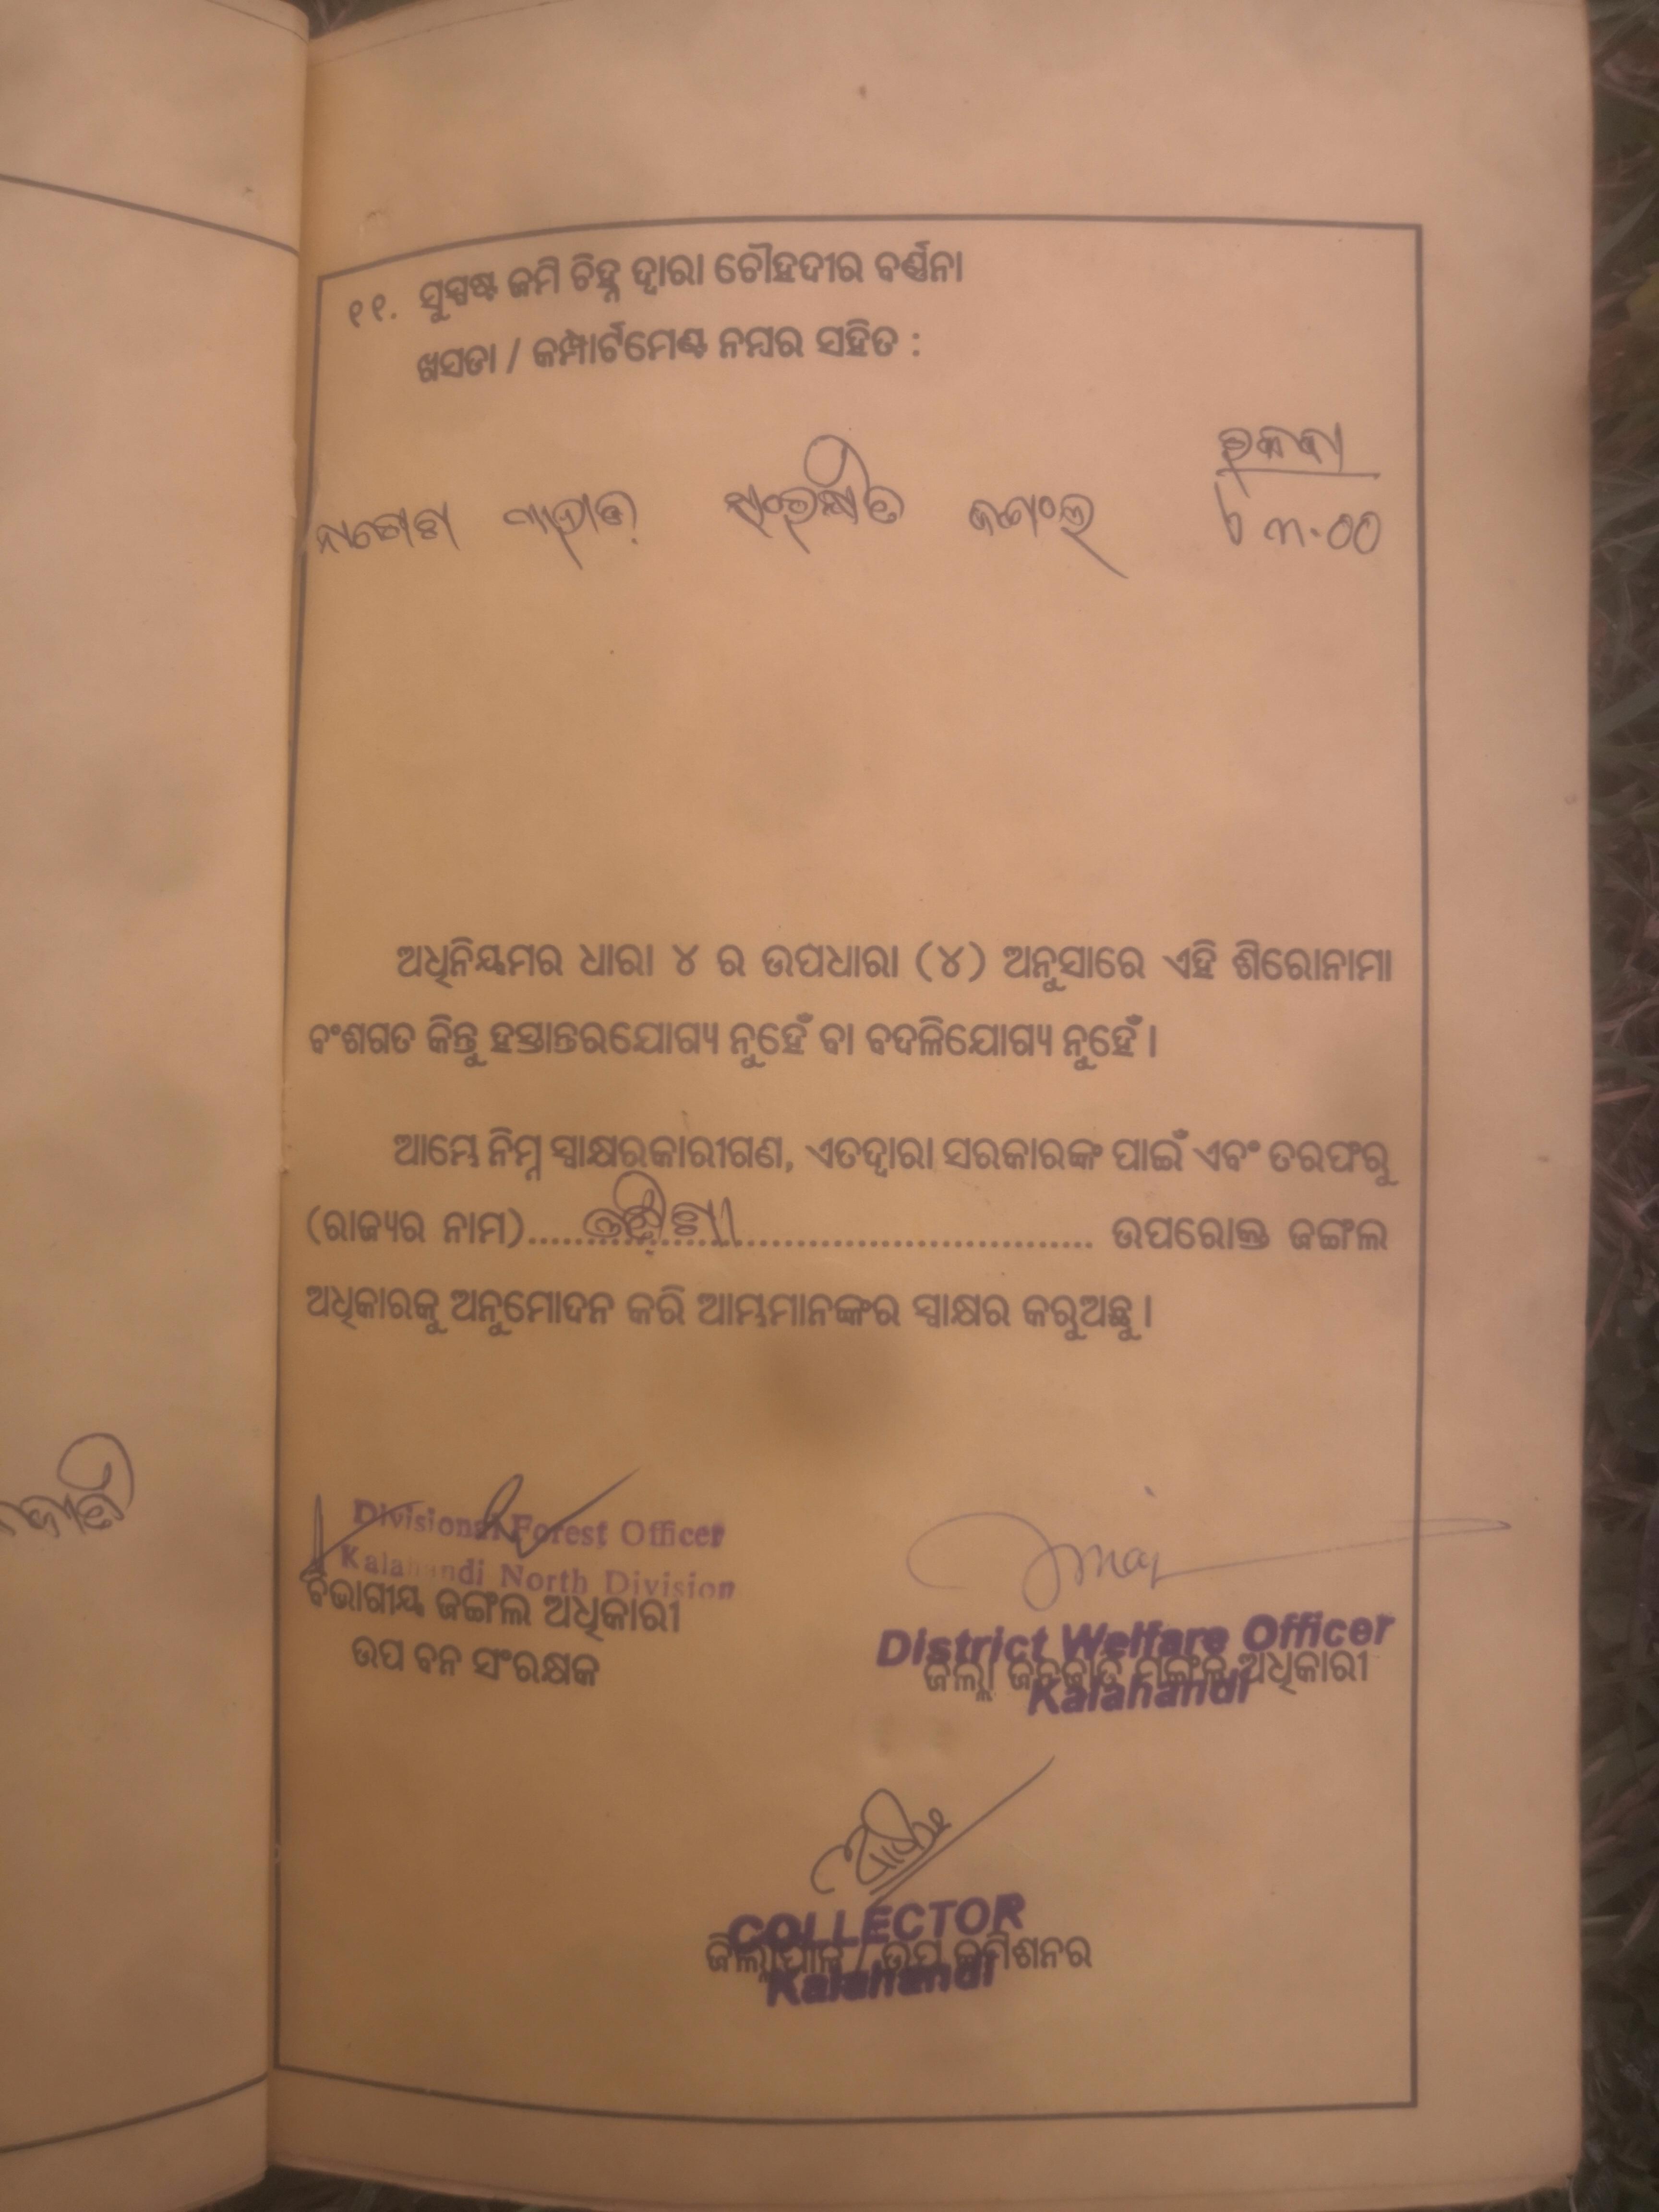 ୧୧. ସୁସ୍ପଷ୍ଟ ଜମି ଚିହ୍ନ ଦ୍ୱାରା ଚୌହଦୀର ବର୍ଣ୍ଣନା
ଖସଡା / କମ୍ପାର୍ଟମେଣ୍ଟ ନମ୍ବର ସହିତ :
ରକବା
ପାହାଡ ସଂରକ୍ଷିତ ଜଙ୍ଗଲ ୮୩.୦୦
ଅଧିନିୟମର ଧାରା ୪ ର ଉପଧାରା (୪) ଅନୁସାରେ ଏହି ଶିରୋନାମା
ବଂଶଗତ କିନ୍ତୁ ହସ୍ତାନ୍ତରଯୋଗ୍ୟ ନୁହେଁ ବା ବଦଳିଯୋଗ୍ୟ ନୁହେଁ ।
ଆମ୍ଭେ ନିମ୍ନ ସ୍ୱାକ୍ଷରକାରୀଗଣ, ଏତଦ୍ୱାରା ସରକାରଙ୍କ ପାଇଁ ଏବଂ ତରଫରୁ
(ରାଜ୍ୟର ନାମ)....ଓଡ଼ିଶା........................ ଉପରୋକ୍ତ ଜଙ୍ଗଲ
ଅଧିକାରକୁ ଅନୁମୋଦନ କରି ଆମ୍ଭମାନଙ୍କର ସ୍ୱାକ୍ଷର କରୁଅଛୁ ।
Divisional Forest Officer
Kalahandi North Division
ବିଭାଗୀୟ ଜଙ୍ଗଲ ଅଧିକାରୀ
ଉପ ବନ ସଂରକ୍ଷକ
District Welfare Officer
ଜିଲ୍ଲା ଜନଜାତି ମଙ୍ଗଳ ଅଧିକାରୀ
Kalahandi
COLLECTOR
ଜିଲ୍ଲାପାଳ / ଉପ କମିଶନର
Kalahandi